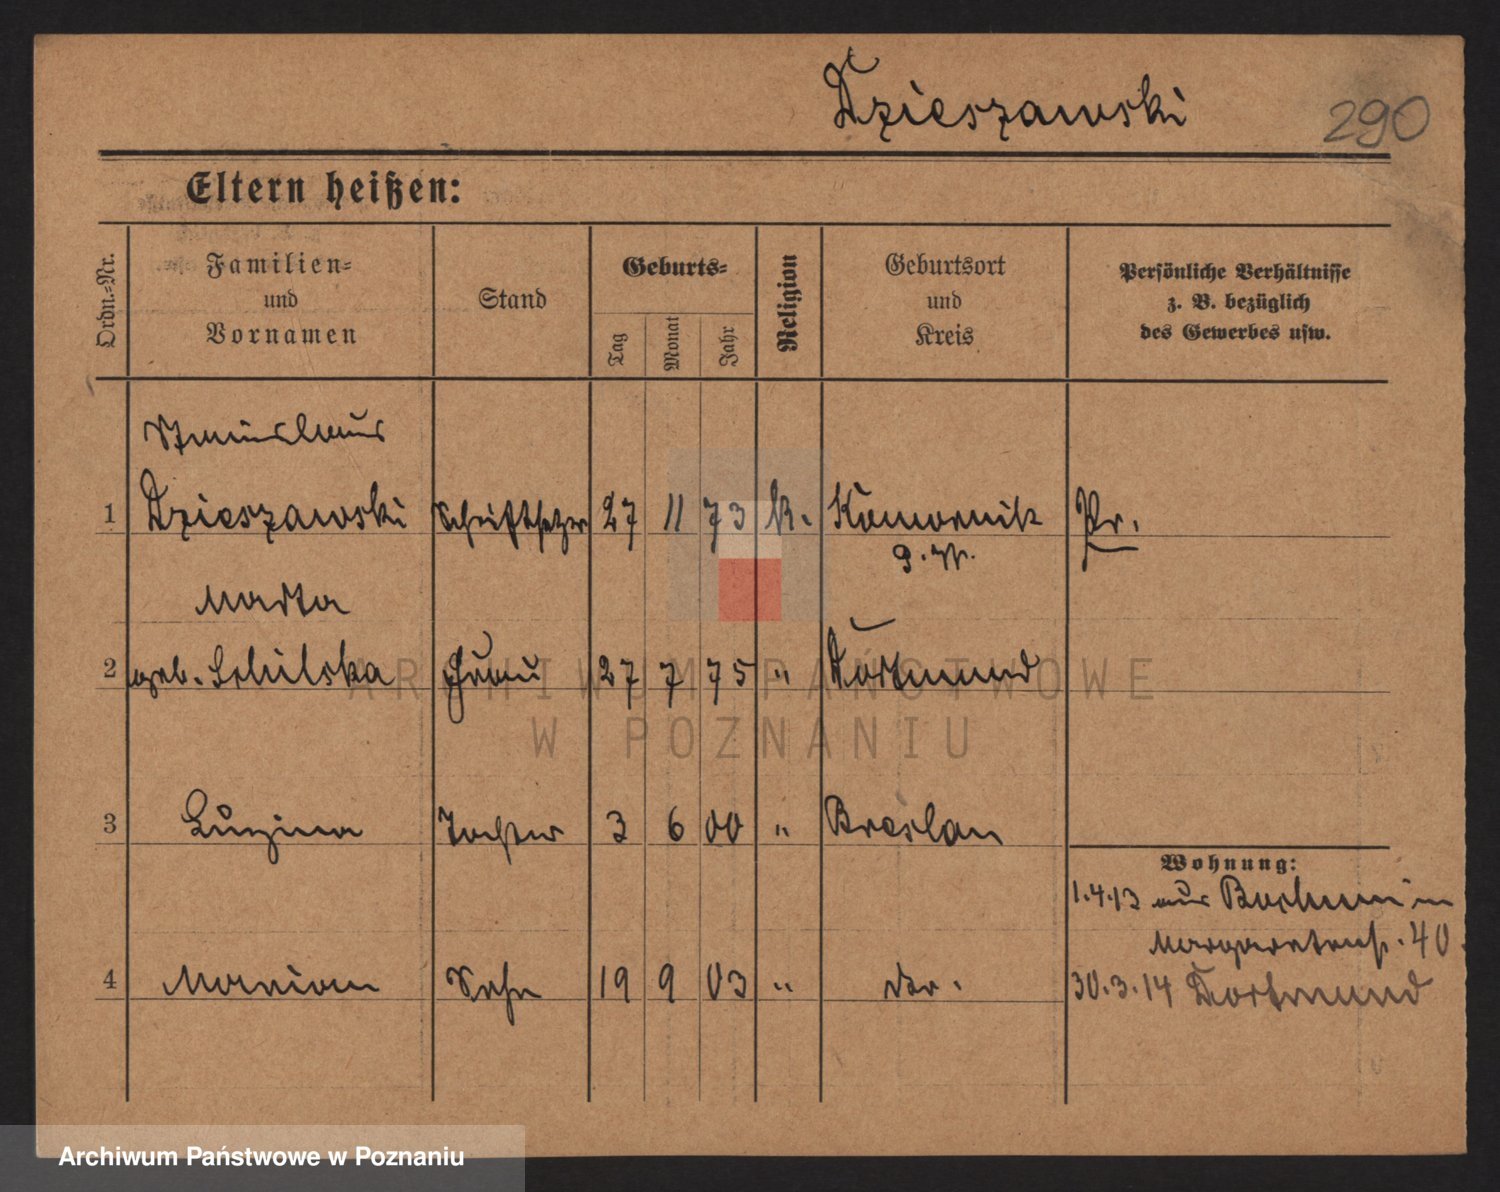 Dzieszawski
290
Eltern heißen:
Ordn.-Nr.
Familien- und Vornamen
Stand
Geburts-
Tag
Monat
Jahr
Religion
Geburtsort und Kreis
Persönliche Verhältnisse
z. B. bezüglich
des Gewerbes usw.
Stanislaus
1 Dzieszawski Schriftsetzer 27 11 73 k. Komornik Pr.
P. W.
Marta
2 geb. Schilska Frau 27 7 75 " Dortmund
3 Luzina Tochter 3 6 00 " Breslau
Wohnung:
1.4.13 aus Bochum in
Margaretenstr. 40.
4 Marian Sohn 19 9 03 " do. 30.3.14 Dortmund
ARCHIWUM PAŃSTWOWE
W POZNANIU
Archiwum Państwowe w Poznaniu